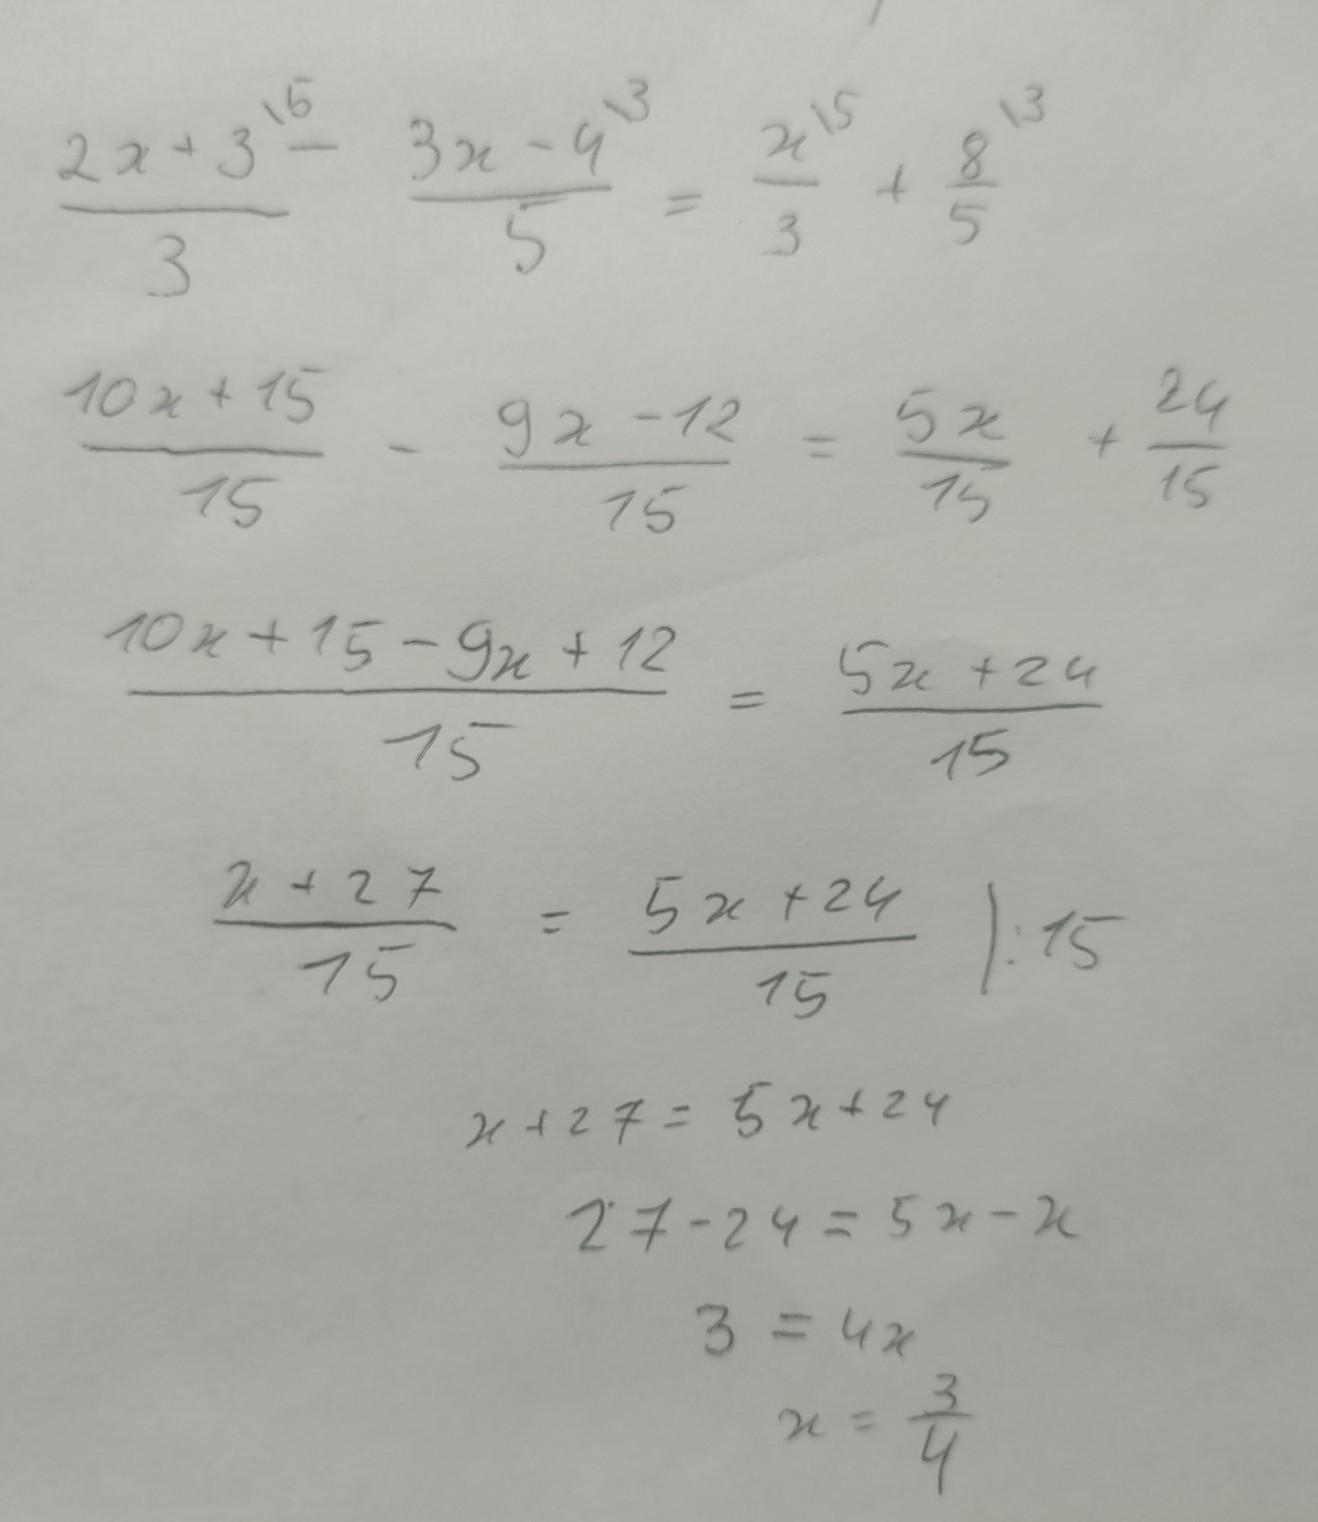 \frac{2x+3}{3}^{\5} - \frac{3x-4}{5}^{\3} = \frac{x}{3}^{\5} + \frac{8}{5}^{\3}
\frac{10x+15}{15} - \frac{9x-12}{15} = \frac{5x}{15} + \frac{24}{15}
\frac{10x+15-9x+12}{15} = \frac{5x+24}{15}
\frac{x+27}{15} = \frac{5x+24}{15} |:15
x+27=5x+24
27-24=5x-x
3=4x
x=\frac{3}{4}